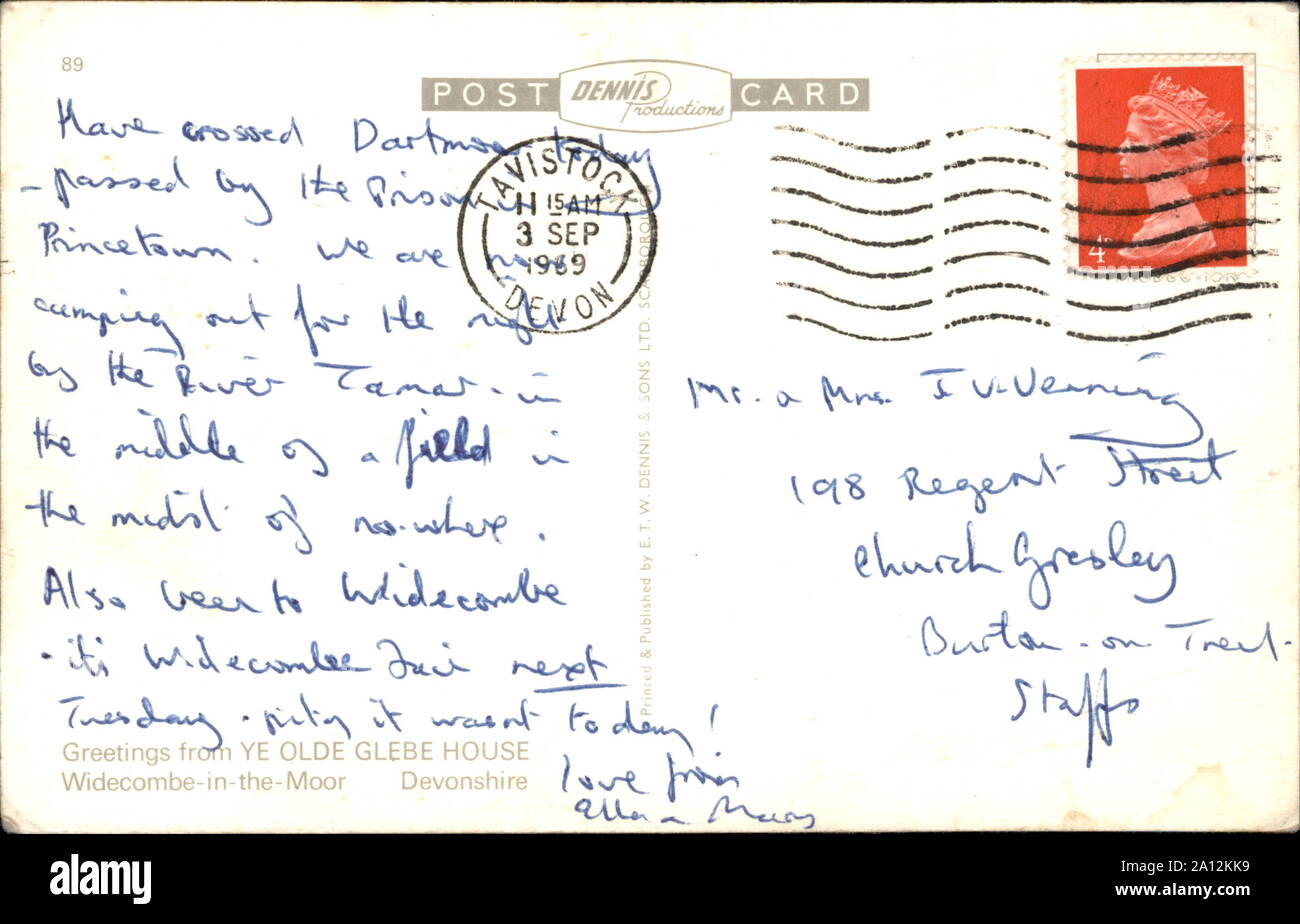 89
POST DENNIS Productions CARD
Have crossed Dartmoor today
- passed by the Prison in
Princetown. We are now
camping out for the night
by the River Tamar - in
the middle of a field in
the midst of no-where.
Also been to Widecombe
- it's Widecombe Fair next
Tuesday - pity it wasn't today!
love from
Ella & Mary
Greetings from YE OLDE GLEBE HOUSE
Widecombe-in-the-Moor Devonshire
Printed & Published by E.T.W. DENNIS & SONS LTD. SCARBOROUGH
TAVISTOCK
11 15 AM
3 SEP
1969
DEVON
4D
Mr. & Mrs. I V. Venning
198 Regent Street
Church Gresley
Burton-on-Trent.
Staffs
alamy
Image ID: 2A12KK9
www.alamy.com